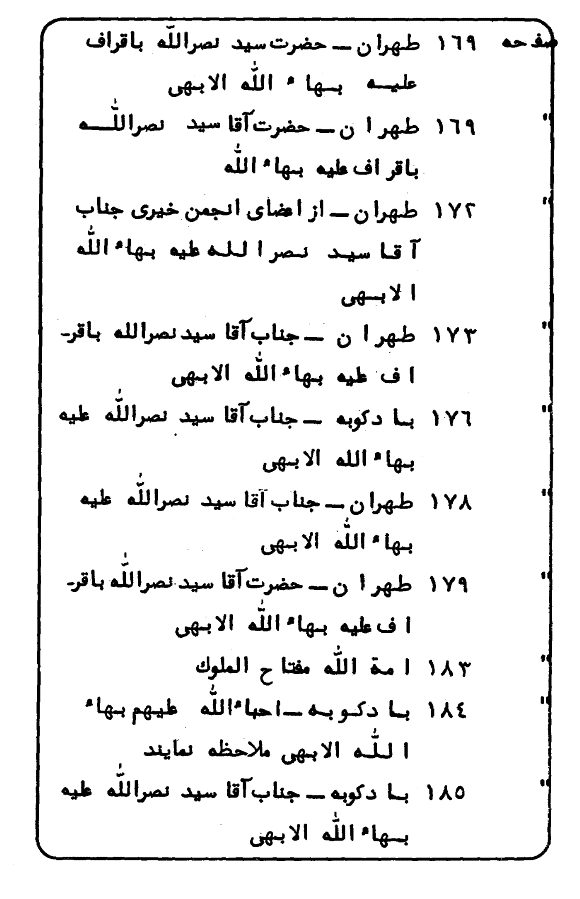 صفحه ۱٦۹ طهران ــ حضرت سید نصراللّه باقراف
علیه بهاءاللّه الابهی
" ۱٦۹ طهران ــ حضرت آقا سید نصراللّه
باقراف علیه بهاءاللّه
" ۱۷۲ طهران ــ از اعضای انجمن خیری جناب
آقا سید نصرالله علیه بهاءاللّه
الابهی
" ۱۷۳ طهران ــ جناب آقا سید نصرالله باقرـ
اف علیه بهاءاللّه الابهی
" ۱۷٦ بادکوبه ــ جناب آقا سید نصراللّه علیه
بهاءالله الابهی
" ۱۷۸ طهران ــ جناب آقا سید نصراللّه علیه
بهاءاللّه الابهی
" ۱۷۹ طهران ــ حضرت آقا سید نصراللّه باقرـ
اف علیه بهاءاللّه الابهی
" ۱۸۳ امة اللّه مفتاح الملوك
" ۱۸٤ بادکوبه ــ احباءاللّه علیهم بهاء
اللّه الابهی ملاحظه نمایند
" ۱۸٥ بادکوبه ــ جناب آقا سید نصراللّه علیه
بهاءاللّه الابهی